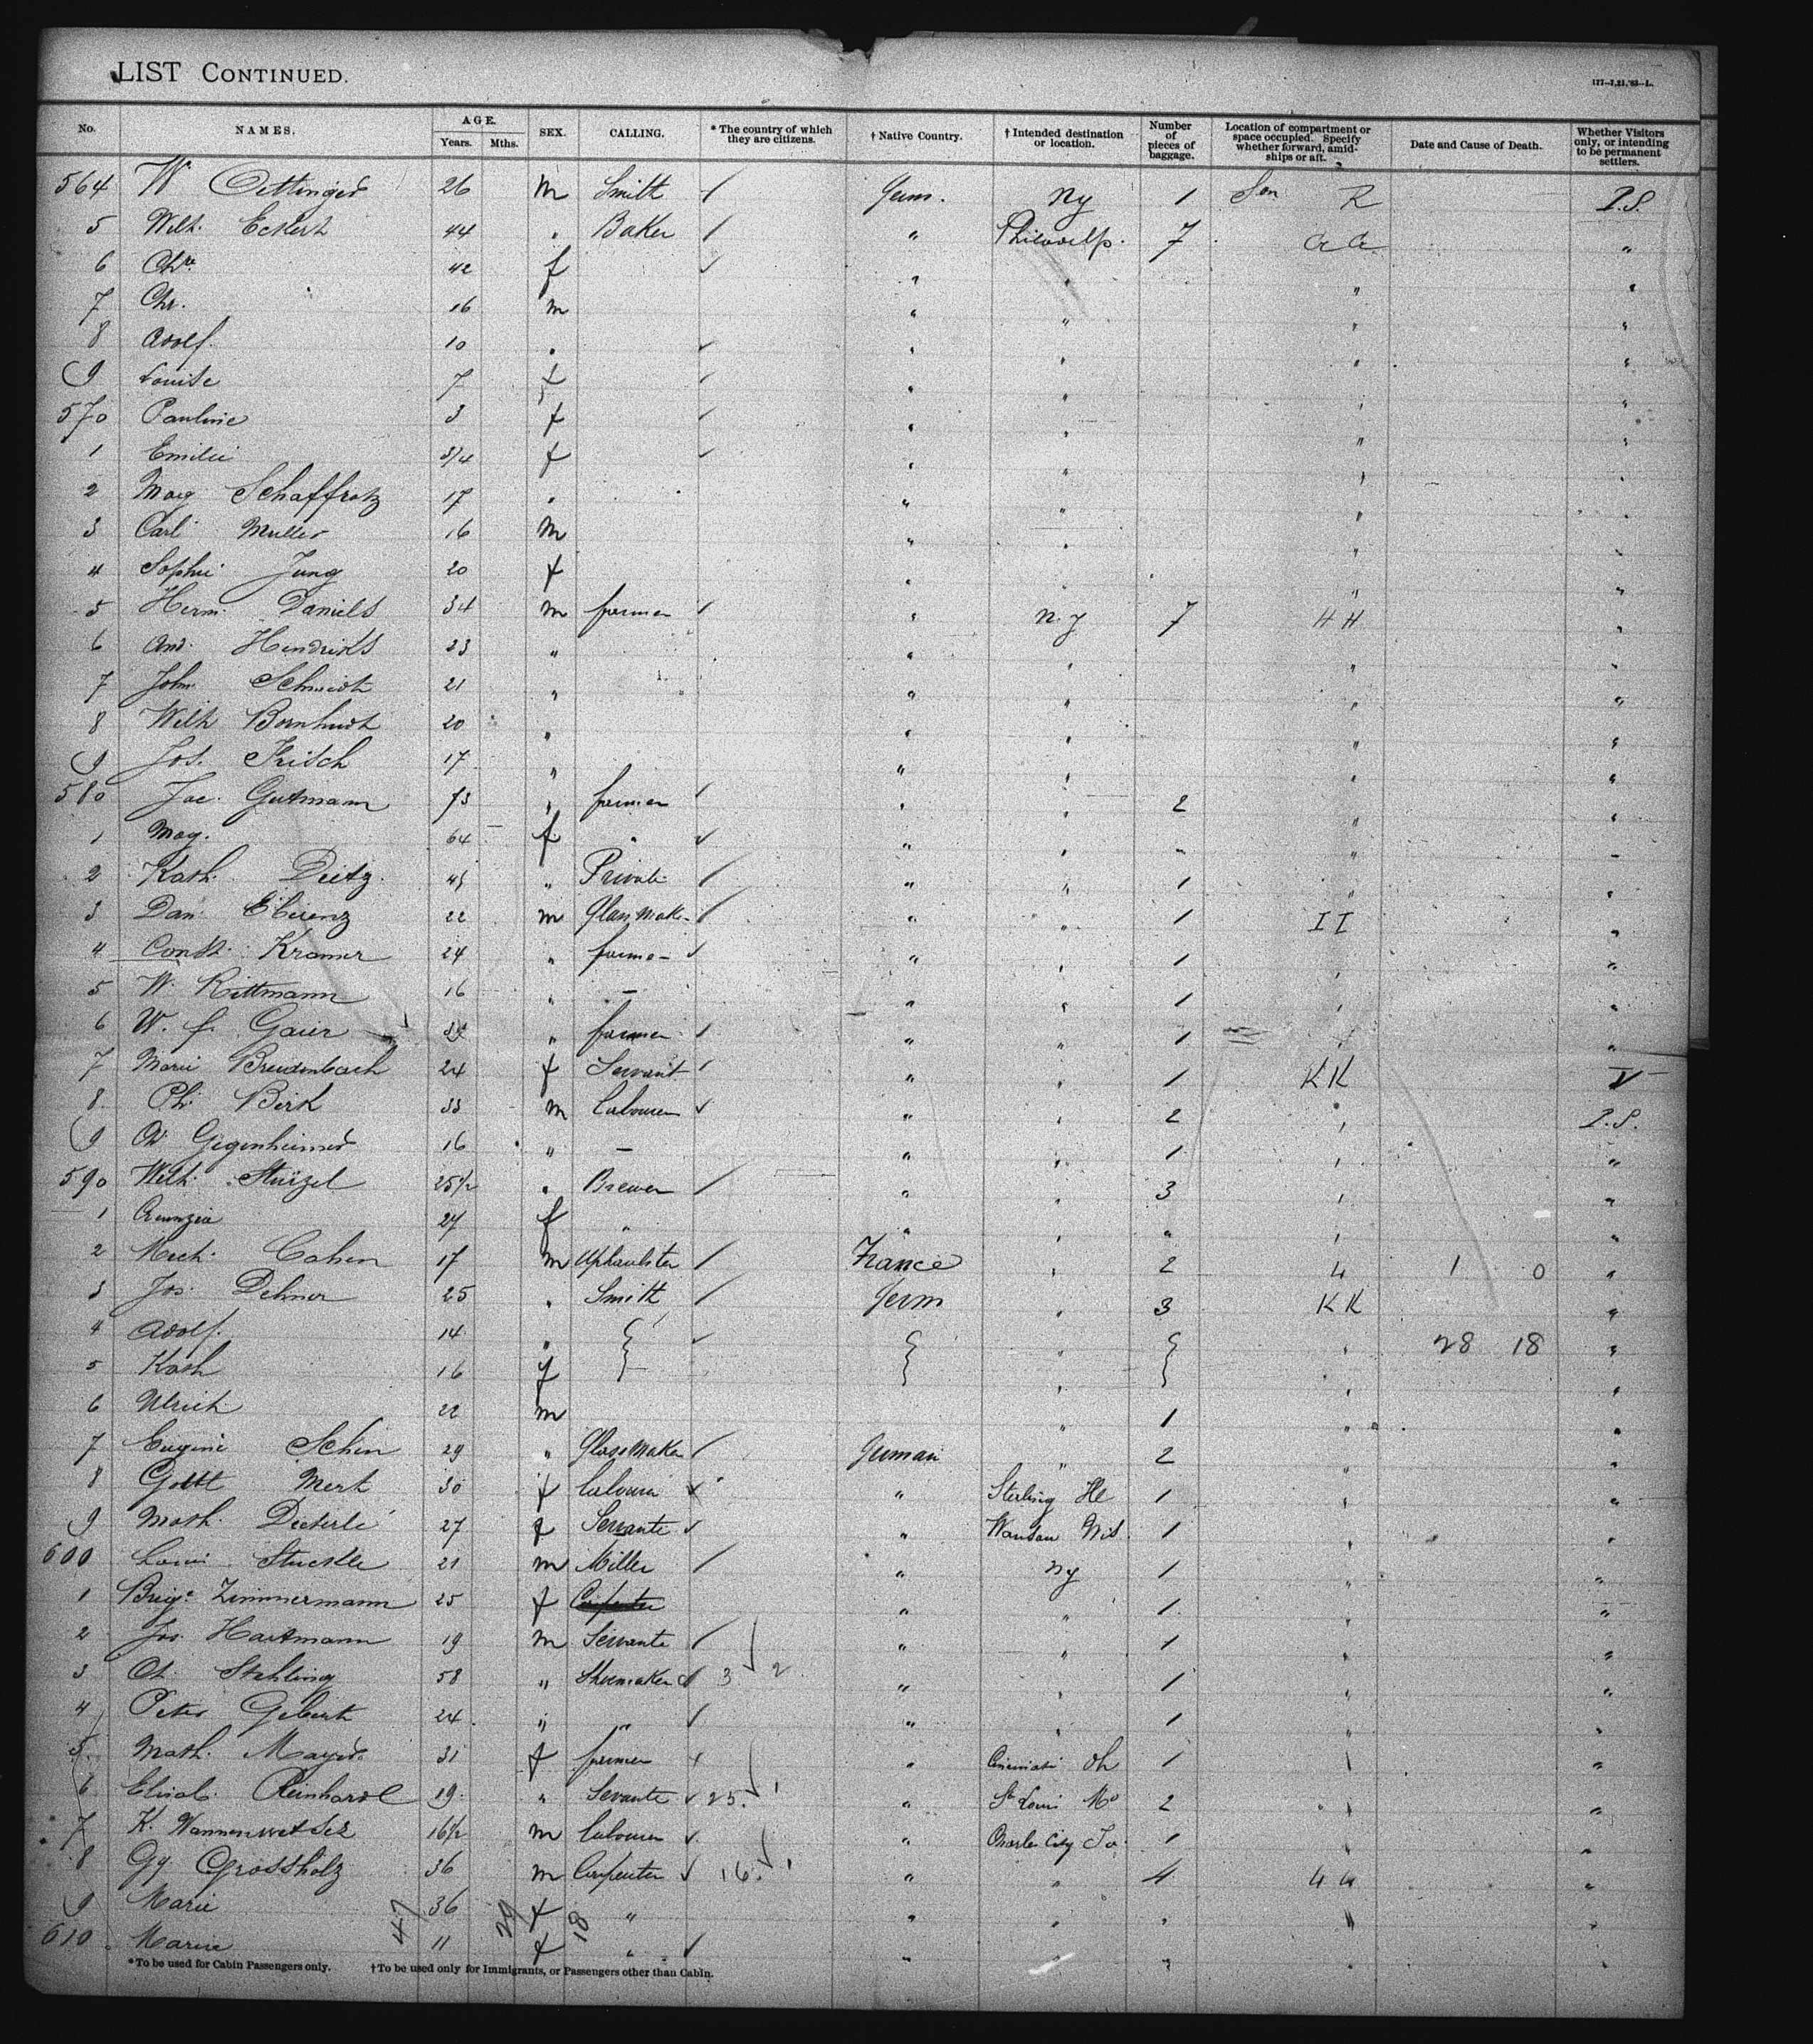 LIST CONTINUED.
177—7,21,'93—L.
No. NAMES. AGE. Years. Mths. SEX. CALLING. * The country of which they are citizens. † Native Country. † Intended destination or location. Number of pieces of baggage. Location of compartment or space occupied. Specify whether forward, amid-ships or aft. Date and Cause of Death. Whether Visitors only, or intending to be permanent settlers.
564 W Oettinger 26 m Smith Germ. Ny 1 R P.S.
5 Wilh. Eckert 44 " Baker " Philadelp. 7 "
6 Chr. 42 f " " " "
7 Chr. 16 m " " " "
8 Adolf. 10 " " " " "
9 Louise 7 f " " " "
570 Pauline 3 f " " " "
1 Emilie 3/4 f " " " "
2 Mag Schaffrotz 17 " " " " "
3 Carl Muller 16 m " " " "
4 Sophie Jung 20 f " " " "
5 Herm. Daniels 34 m farmer " N.Y 7 HH "
6 And. Hendriks 23 " " " " "
7 Joh. Schmidt 21 " " " " "
8 Wilh 20 " " " " "
9 Jos. Fritsch 17 " " " " "
580 Jac. Gutmann 73 " farmer " " 2 " "
1 Mag. 64 f " " " " " "
2 Kath. Dietz 45 " Private " " 1 " "
3 Dan. Eberenz 22 m Glass Make " " 1 II "
4 Const. Kramer 24 " farme " " 1 " "
5 W. Rittmann 16 " — " " 1 " "
6 W. f. Gaier " farmer " " 1 " "
7 Marie Breidenbach 24 f Servant " " 1 KK V
8 Ph. Birk 33 m Labourer " " 2 " P.S.
9 Gegenheimer 16 " — " " 1 " "
590 Wilh. Stürzel 25 1/2 " Brewer " " 3 " "
1 27 f " " " " " "
2 Mich. Cahen 17 m Uphaulster France " 2 4 1 0 "
3 Jos. Dehner 25 " Smith Germ " 3 KK "
4 Adolf. 14 " " " 28 18 "
5 Kath 16 f " " "
6 Ulrich 22 m " 1 " "
7 Eugene Schen 29 " Glassmaker German " 2 " "
8 Gottl Merk 30 f Labourer " Sterling Ill 1 " "
9 Math. Dieterle 27 f Servante " Wausau Wis. 1 " "
600 Louis 21 m Miller " Ny 1 " "
1 Brig. Zimmermann 25 f Carpenter " " 1 " "
2 Jos. Hartmann 19 m Servante " " 1 " "
3 Stehling 58 " Shoemaker 3 2 " " 1 " "
4 Peter Gebert 24 " " " " 1 " "
5 Math. Mayer 31 f farmer " Cincinati Oh 1 " "
6 Elisab. Reinhardt 19 " Sevante 25. " St Louis Mo 2 " "
7 K. Wannenwetsch 16 1/2 m Labourer " Charles City Io. 1 " "
8 Gg Grossholz 36 m Carpenter 16. " " 4 "
9 Marie 36 f " " " " " "
610 Marie 11 f " " " " " "
47 29 18
* To be used for Cabin Passengers only. † To be used only for Immigrants, or Passengers other than Cabin.